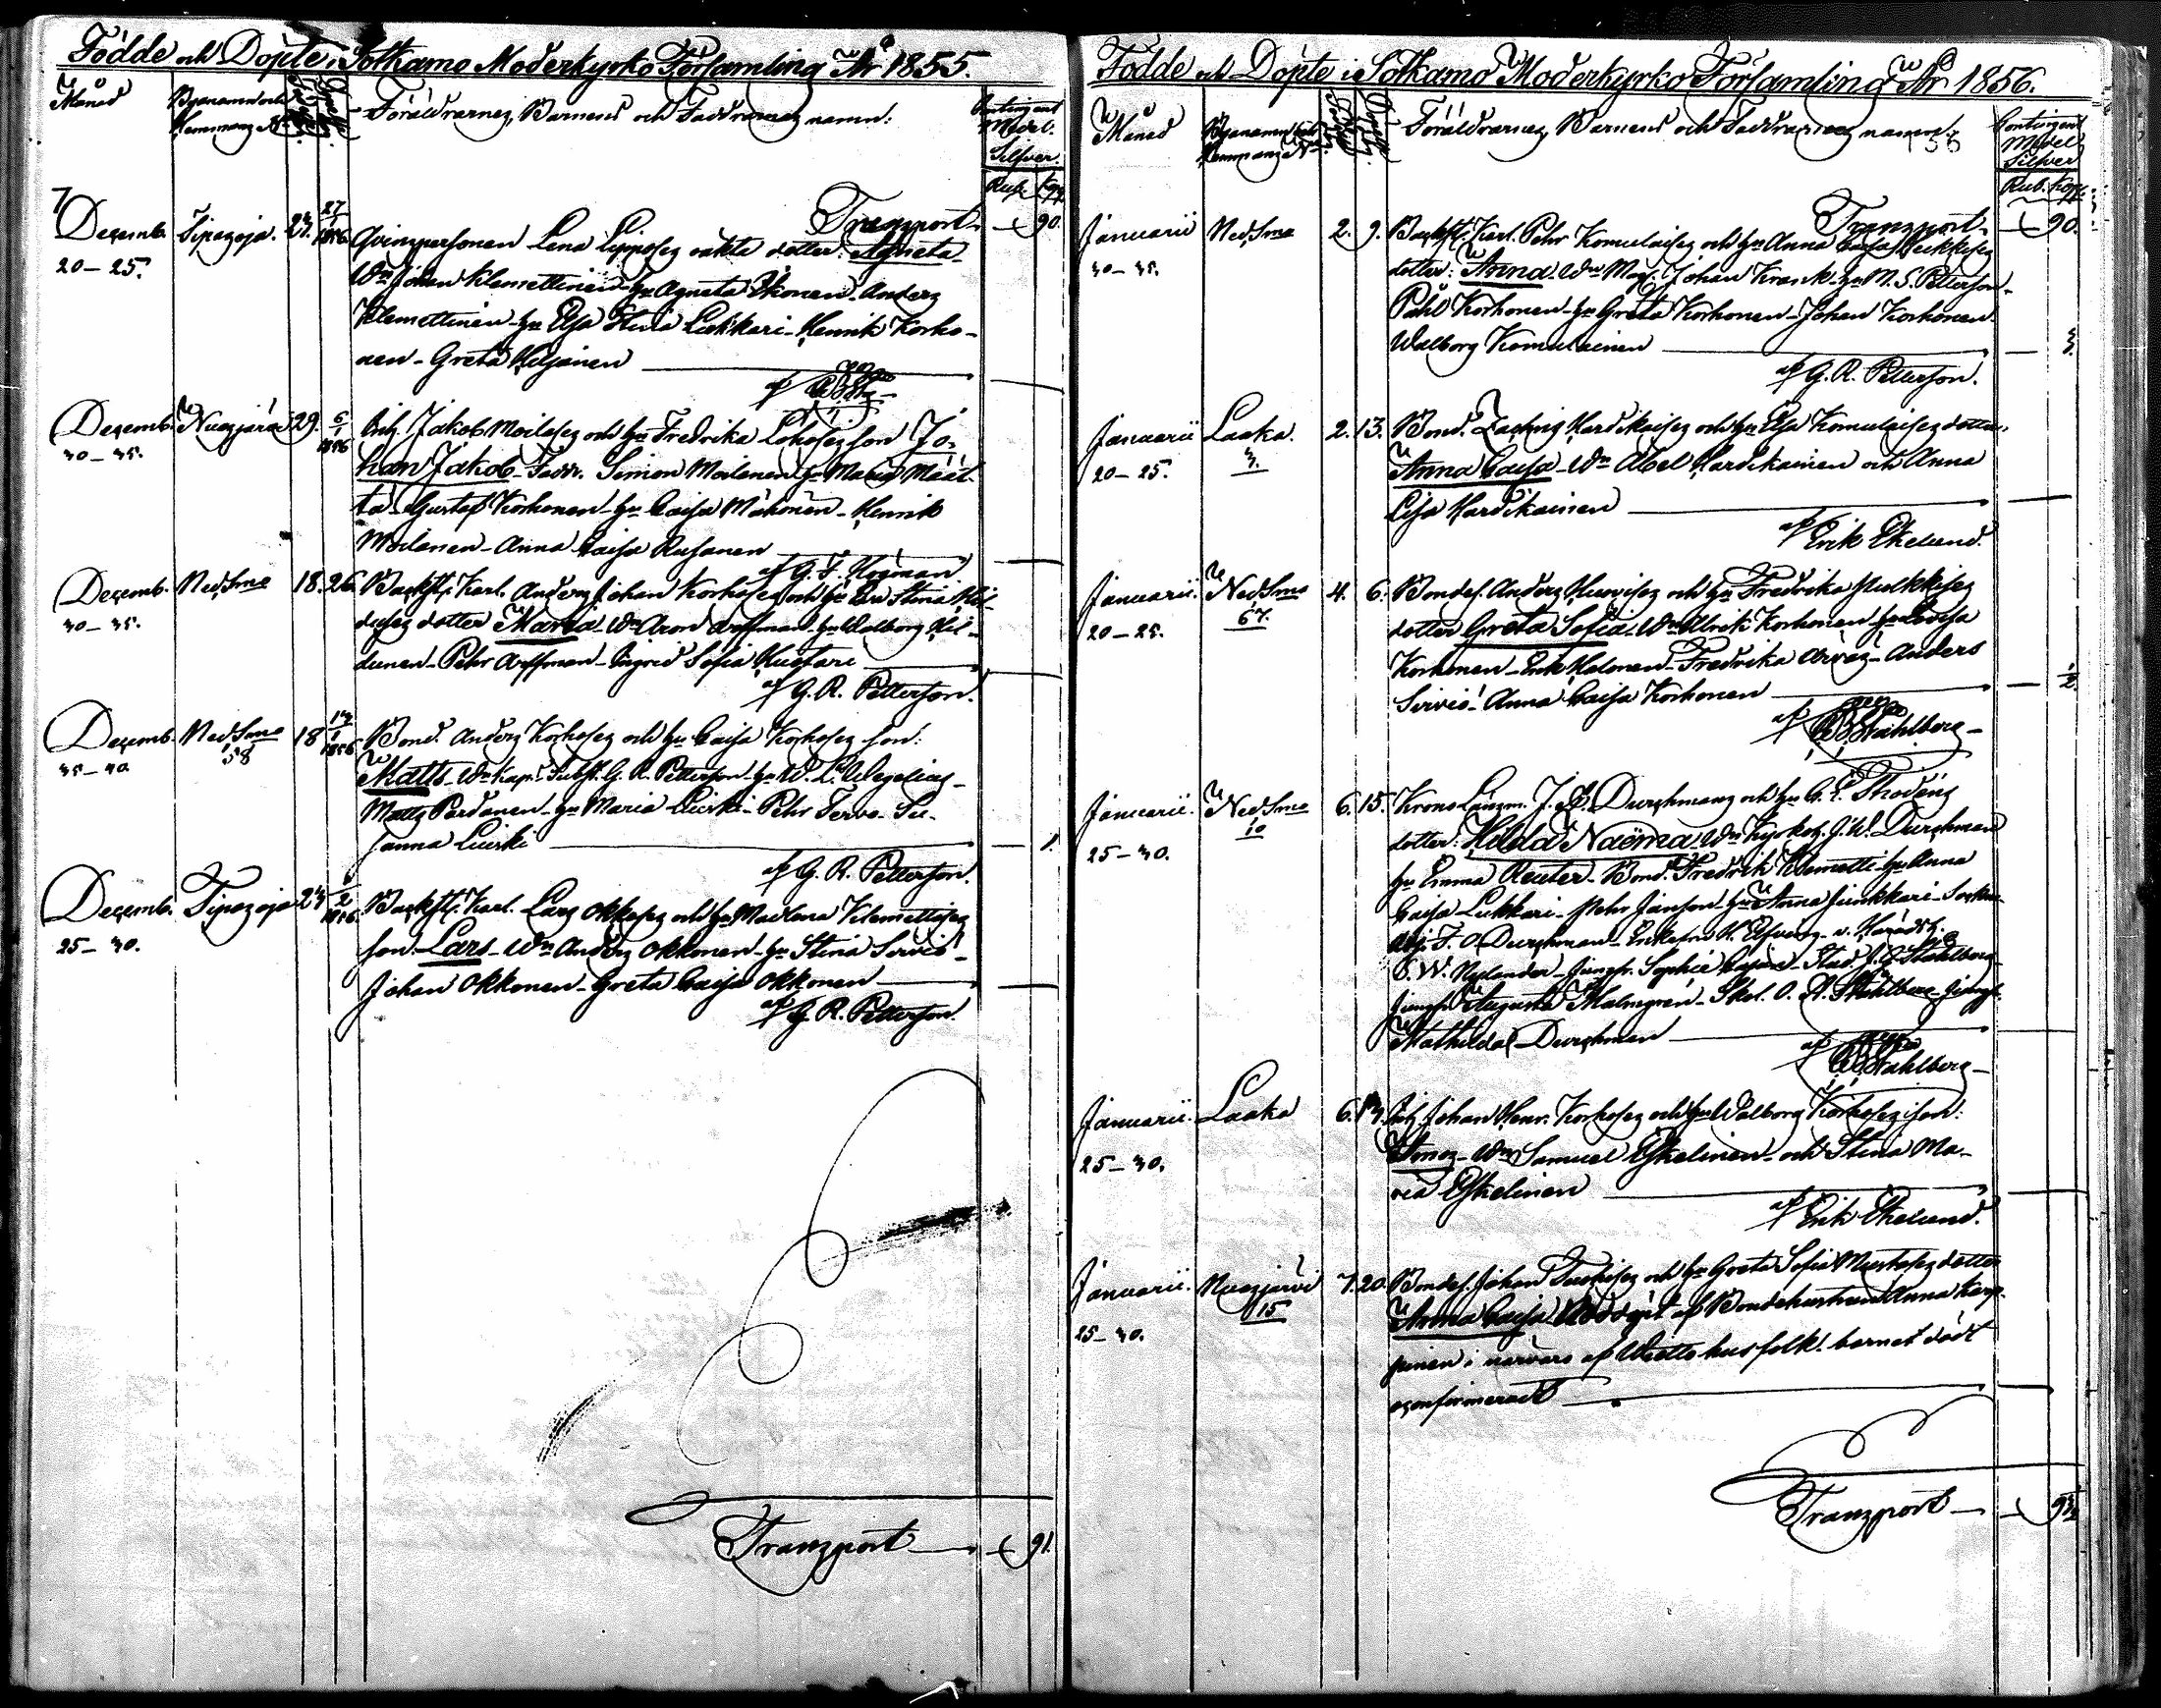 Födde och Döpte i Sotkamo Moderkyrko Församling År 1855.
Månad
Byanamn och
Hemmans No
Föräldrarnes, Barnens och Faddrarnes namn:
Contingent
Medel.
Silfver
Rub. Kop.
Transport 90.
Decemb. Tipasoja. 23. 27/1 1856 Qvinspersonen Lena Lipposes oäkta dotter: Agneta
20-25. Wn Johan Klemettinen hu Agneta Ikonen. Anders
Klemettinen hu Elsa Stina Lukkari. Henrik Korho-
nen - Greta Hiljanen
af
Decemb. Nuasjärvi 29. 6/1 1856 Inh. Jakob Moilases och hu Fredrika son Jo-
30-35. han Jakob Faddr. Simon Moilanen hu Maria Määt-
tä - Gustaf Korhonen - hu Caisa Mähönen - Henrik
Moilanen - Anna Caisa Rusanen
af G. F. Högman
Decemb. Ned.Smo 18. 26. Backst. Karl. Anders Johan Korhoses och hu Eva Stina
30-35. dotter Maria Wn Aron Arffman hu Walborg Kil-
dunen - Pehr Arffman - Ingrid Sofia Huotari
af G. R. Petterson.
Decemb. Ned.Smo 18 13/1 1856 Bond. Anders Korhoses och hu Caisa Korhoses son:
35-40. 58 Matts Wn Kap. Subst. G. R. Petterson hu W. L. Wegelius
Matts Pardanen - hu Maria Luirki - Pehr Tervo - Su-
sanna Luirki 1.
af G. R. Petterson.
Decemb. Tipasoja 23 2 1856 Backst. Karl. Lars Okkoses och hu Madlena Klemettises
25-30. son. Lars Wn Anders Okkonen - hu Stina Sirviö -
Johan Okkonen - Greta Caisa Okkonen
af G. R. Petterson.
Transport 91.
Födde och Döpte i Sotkamo Moderkyrko Församling År 1856.
Månad
Byanamn och
Hemmans No
Föräldrarnes, Barnens och Faddrarnes namn:
Contingent
Medel
Silfver
Rub. Kop.
Transport 90.
Januarii Ned.Smo 2. 9. Backst. Karl. Pehr Komulaises och hu Anna Caisa
30-35. dotter: Anna Wn Mag. Johan Krank hu M. S. Petterson.
Påhl Korhonen - hu Greta Korhonen - Johan Korhonen
Walborg Komulainen
af G. R. Petterson.
Januarii Laaka. 2. 13. Bond. Zachris Hardikaises och hu Elsa Komulaises dotter
20-25. 3. Anna Caisa - Wn Abel Hardikainen och Anna
Lisa Hardikainen
af Erik Ekelund.
Januarii. Ned.Smo 4. 6. Bondes. Anders Huovises och hu Fredrika Pulkkises
20-25. 67. dotter Greta Sofia - Wn Ulrik Korhonen hu Lovisa
Korhonen - Erik Halonen - Fredrika - Anders
Sirviö - Anna Caisa Korhonen 1/2.
af Ståhlberg
Januarii. Ned.Smo 6. 15. Krono Länsm. J. Durchmans och hu
25-30. 10 dotter: Hilda Naëma Wn Kyrkoh. J. W. Durchman
hu Emma Reuter - Bond. Fredrik Klemetti hu Anna
Caisa Lukkari - Pehr Janson hu Anna Junkkari -
F. O. Durchman - Enkefru H. Elfving - v. Häradsh.
C. W. Nylander - Jungfr. Sophie Cajan - Stud. Ståhlberg
Jungfr. Augusta Malmgren - Skol. O. A. Ståhlberg Jungfr.
Mathilda Durchman
af Ståhlberg
Januarii. Laaka 6. 13. Inh. Johan Henr. Korhoses och hu Walborg Korhoses son:
25-30. Amos - Wn Samuel Eskelinen - och Stina Ma-
ria Eskelinen
af Erik Ekelund.
Januarii. Nuasjärvi 7. 20. Bondes. Johan och hu Greta Sofia Mustoses dotter
25-30. 15 Anna Caisa Nöddöpt af Bondehustrun Anna Karp-
pinen i närvaro af husfolk. barnet dödt
oconfirmeradt
Transport